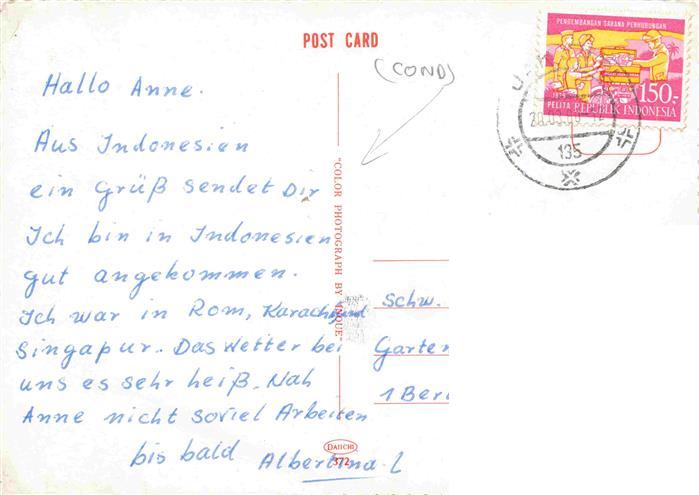 POST CARD
(COND)
Hallo Anne.
Aus Indonesien
ein Grüß sendet Dir
Ich bin in Indonesien
gut angekommen.
Ich war in Rom, Karachi und
Singapur. Das Wetter bei
uns es sehr heiß. Nah
Anne nicht soviel Arbeiten
bis bald Albertina L
"COLOR PHOTOGRAPH BY INOUE"
DAIICHI
372
PENGEMBANGAN SARANA PERHUBUNGAN
150.-
PELITA REPUBLIK INDONESIA
135
Schw.
Garten
1 Berl